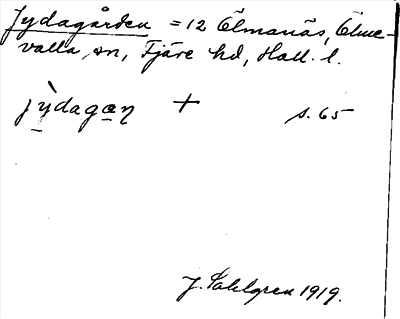 Jydagården = 12 Ölmanäs, Ölme-
valla sn, Fjäre hd, Hall. l.
jỳ̱daga̱ŋ + s. 65
J. Sahlgren 1919.